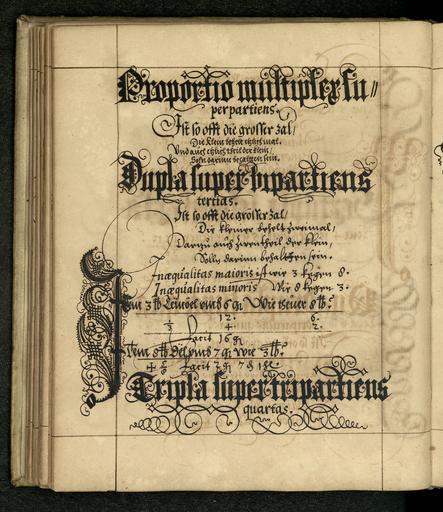 Proportio multiplex su//
perpartiens.
Ist so offt die grosser zal/
Die klein beheit etlich mal.
Und auch etlich theil der klein/
Solln darinn behalten sein.
Dupla super bipartiens
tertias.
Ist so offt die grosser zal/
Die kleiner beholt zweimal/
Dartzu auch zwentheil der klein/
Solln darinn behaltten sein.
Inæqualitas maioris ist wie 3 kegen 8.
Inæqualitas minoris Wie 8 kegen 3.
Item 3 ℔ umb 6 gl Wie theuer 8 ℔?
12. 6.
1/3 4. 2.
facit 16 gl
Item 8 ℔ umb 7 gl wie 3 ℔?
facit 2 gl 7
Tripla supertripartiens
quartas.